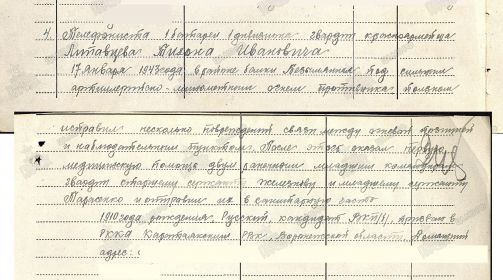 4. Телефониста 1 батареи 1 дивизиона гвардии красноармейца
Литавцева Ивановича
17 Января 1943 года в районе балки Безымянная под сильным
артиллерийско минометным огнем противника ползком
исправил несколько повреждений связи между огневой позицией
и наблюдательным пунктом. После этого оказал первую
медицинскую помощь двум раненным младшим командирам
гвардии старшему сержанту Железневу и младшему сержанту
Тарасенко и отправил их в санитарную часть
1910 года рождения, Русский, кандидат ВКП/б/, призван в
РККА Каратаякским РВК, Воронежской области, Домашний
адрес: